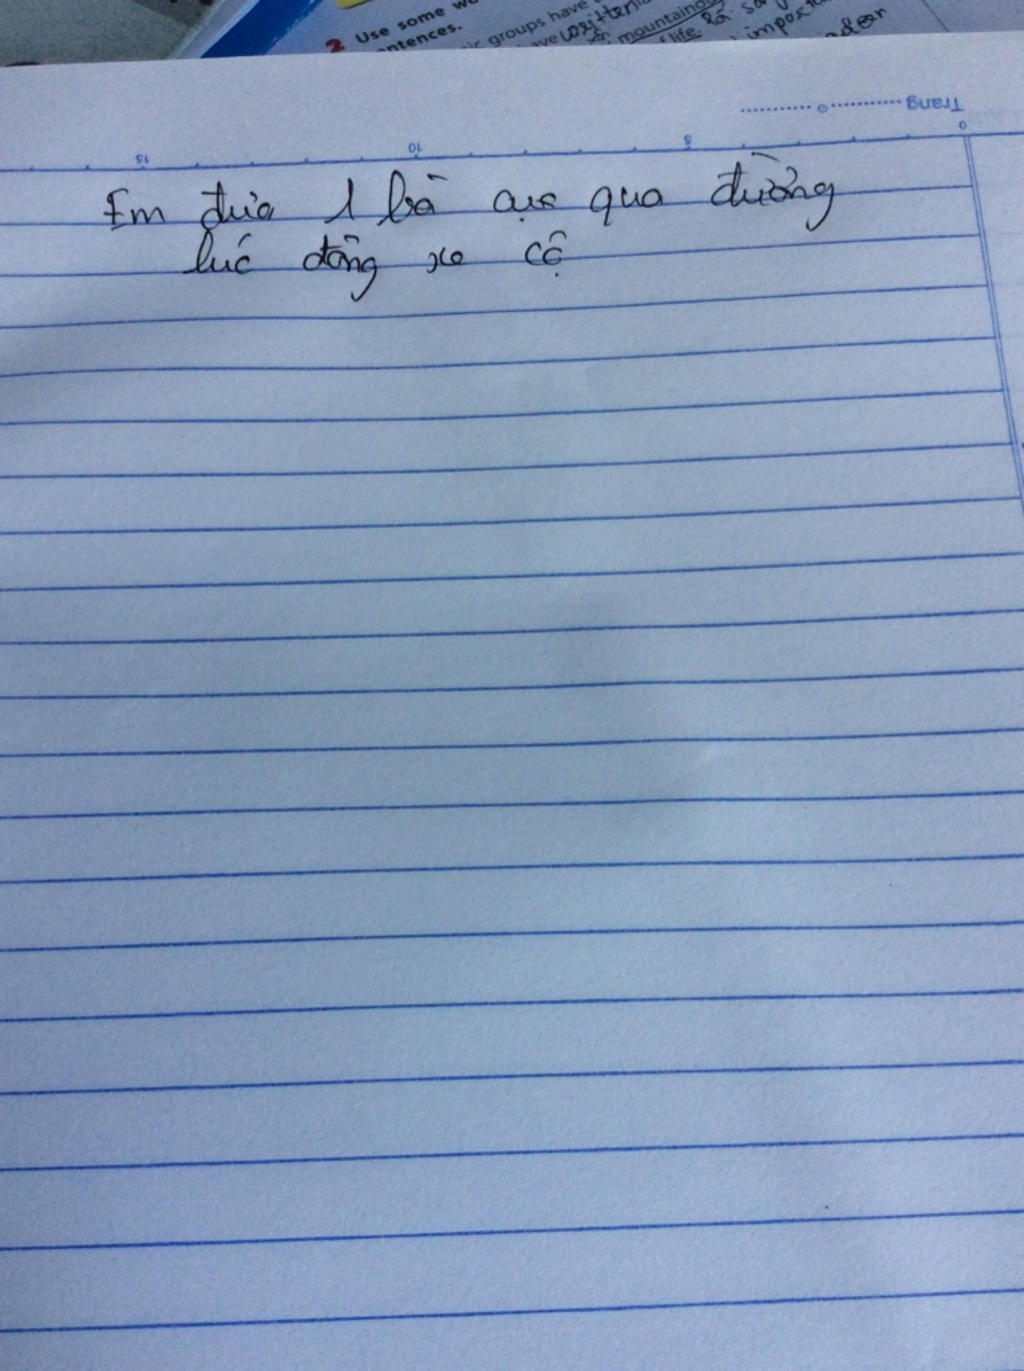 2 Use some wo
entences.
ic groups have
ave written
mountainou
f life.
impost
Trang
15 10 5 0
Em đưa 1 bà cụ qua đường
lúc đông xe cộ